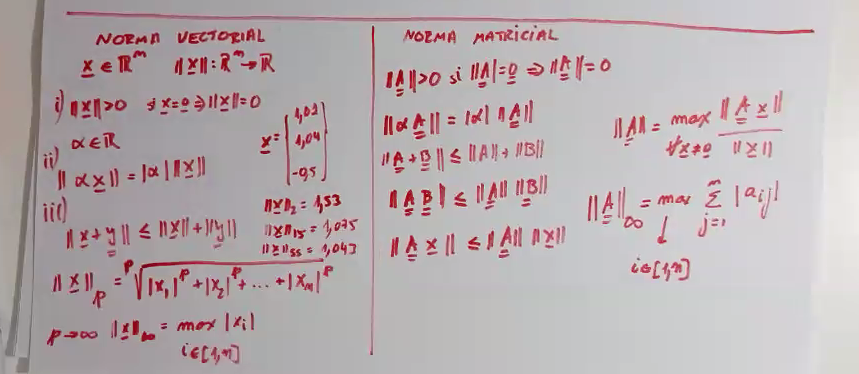 NORMA VECTORIAL
x ∈ ℝᵐ ‖x‖: ℝᵐ → ℝ
i) ‖x‖>0 si x=0 ⇒ ‖x‖=0
α∈ℝ
ii) ‖αx‖ = |α| ‖x‖
x = [1,02 1,04 -0,5]
iii) ‖x+y‖ ≤ ‖x‖+‖y‖
‖x‖₂ = 1,53
‖x‖₁₅ = 1,075
‖x‖₅₅ = 1,043
‖x‖ₚ = ᵖ√|x₁|ᵖ+|x₂|ᵖ+...+|xₘ|ᵖ
p→∞ ‖x‖∞ = max |xᵢ|
i∈[1,n]
NORMA MATRICIAL
‖A‖>0 si ‖A‖=0 ⇒ ‖A‖=0
‖αA‖ = |α| ‖A‖
‖A+B‖ ≤ ‖A‖+‖B‖
‖AB‖ ≤ ‖A‖ ‖B‖
‖Ax‖ ≤ ‖A‖ ‖x‖
‖A‖ = max ‖Ax‖ / ‖x‖
∀x≠0
‖A‖∞ = max Σ |aᵢⱼ|
m
j=1
↓
i∈[1,n]